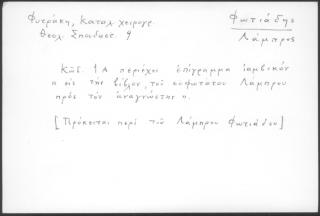 Φυτράκη, Καταλ. χειρογρ.
Θεολ. Σπουδαστ. 9
Φωτιάδης
Λάμπρος
Κώδ. 1Α περιέχει ἐπίγραμμα ἰαμβικόν
" εἰς τήν βίβλον τοῦ σοφωτάτου Λάμπρου
πρός τόν ἀναγνώστην".
[Πρόκειται περί τοῦ Λάμπρου Φωτιάδου]